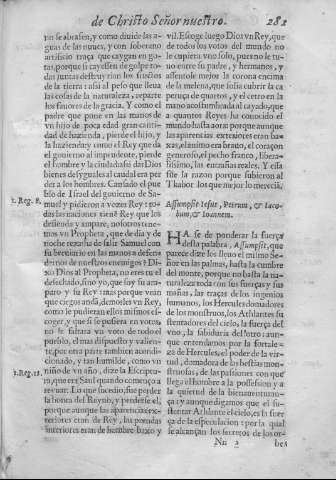 de Christo Señor nuestro. 281
tan se abrasen, y como divide las a-
guas de las nuves, y con soberano
artificio traça que caygan en go-
tas, porque si cayessen de golpe to-
das juntas destruyrian los fructos
de la tierra: assi al peso que lleva
las cosas de la naturaleza, reparte
los favores de la gracia. Y como el
padre que pone en las manos de
un hijo de poca edad gran canti-
dad de hazienda, pierde el hijo, y
la hazienda: y como el Rey que da
el govierno al imprudente, pierde
el hombre y la ciudad: assi da Dios
bienes desyguales al caudal era per
der a los hombres. Cansado el pue
1. Reg. 8. blo de Israel del govierno de Sa-
muel y pidieron a vozes Rey: to-
das las naciones tienē Rey que los
defienda y ampare, nosotros tene-
mos un Propheta, que de dia y de
noche rezarà de salir Samuel con
su breviario en las manos a defen
dernos de nuestros enemigos? Di-
xo Dios al Propheta, no eres tu el
desechado, sino yo, que soy su am-
paro y su Rey: mas porque vean
que ciegos andā, demosles un Rey,
como le pudieran ellos mismos es-
coger, y que si se pusiera en votos,
no le faltara un voto de todo el
pueblo, el mas dispuesto y valien-
te, por otra parte tambien acondi-
cionado, y tan humilde, como un
1. Reg. 13. niño de un año, dize la Escriptu-
ra, que era Saul quando começò a
reynar. Lo que sucedio, fue perder
la honra del Reyno, y perderse el,
porque aunque las aparencias ex-
teriores eran de Rey, las prendas
interiores eran de hombre baxo y
vil. Escoge luego Dios un Rey, que
de todos los votos del mundo no
le cupiera uno solo, puesto le tu-
vo entre su padre, y hermanos, y
assentole mejor la corona encima
de la melena, que solia cubrir la ca
peruça de quartos, y el cetro en la
mano acostumbrada al cayado, que
a quantos Reyes ha conocido el
mundo hasta aora: porque aunque
las aparencias exteriores eran bas-
tas, el animo era brato, el coraçon
generoso, el pecho franco, libera-
lissimo, las entrañas reales. Y essa
fue la razon porque subieron al
Thabor los que mejor lo mereciā.
Assumpsit Iesus, Petrum, & Iaco-
bum, & Ioannem.
HA se de ponderar la fuerça
desta palabra, Assumpsit, que
parece dize los llevo el mismo Se-
ñor en las palmas, hasta la cumbre
del monte, porque no basta la na-
turaleza toda con sus fuerças y sus
mañas, las traças de los ingenios
humanos, los Hercules domadores
de los monstruos, los Athlantes su
stentadores del cielo, la fuerça del
uno, la sabiduria del otro: aun-
que entendamos por la fortale-
za de Hercules el poder de la vir-
tud, domadora de las bestias mon-
struosas, de las passiones con que
llega el hombre a la possession y a
la quietud de la bienaventuran-
ça: y aunque digamos que el su-
stentar Athlante el cielo, es la fuer
ça de la especulacion: por la qual
se alcançan los secretos de los or-
Nn 2 bes